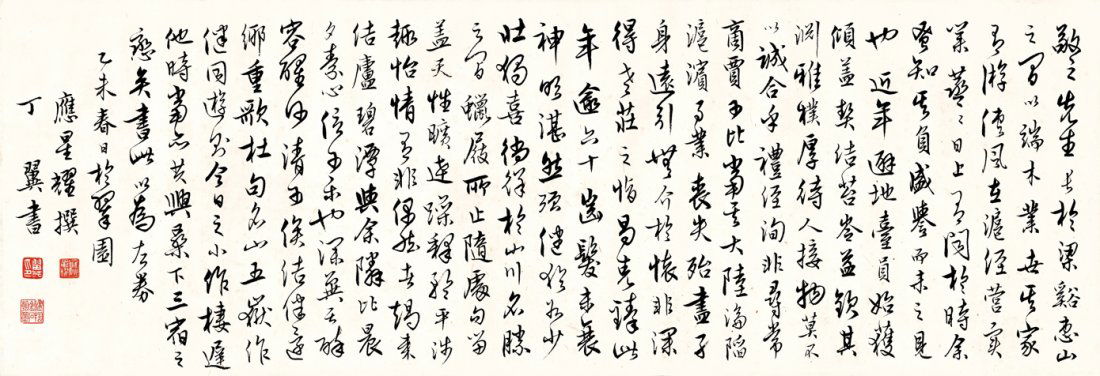 敬之先生長於梁谿惠山
之間以端木業世其家
有游俠風在滬經營實
業蒸蒸日上有聞於時余
嘗知其負盛譽而未之見
也近年避地臺員始獲
傾蓋契結苔岑益欽其
淵雅樸厚待人接物莫不
以誠合乎禮經洵非尋常
商賈可比當其大陸淪陷
滬濱事業喪失殆盡孑
身遠引無介於懷非深
得老莊之恉曷克臻此
年逾六十鬢髮未衰
神明湛然頑健猶如少
壯獨喜徜徉於山川名勝
之間蠟屐所止隨處句留
蓋天性曠達躁釋矜平涉
趣怡情有非偶然者竭來
結廬碧潭與余隣比晨
夕素心信可樂也深羨其醉
容醒汝清可俟結伴遨
鄉重歌杜句名山五嶽作
伴同遊則今日之小作棲遲
他時當亦共興桑下三宿之
戀矣書此以為左券
乙未春日於翠園
應星耀撰
丁翼書